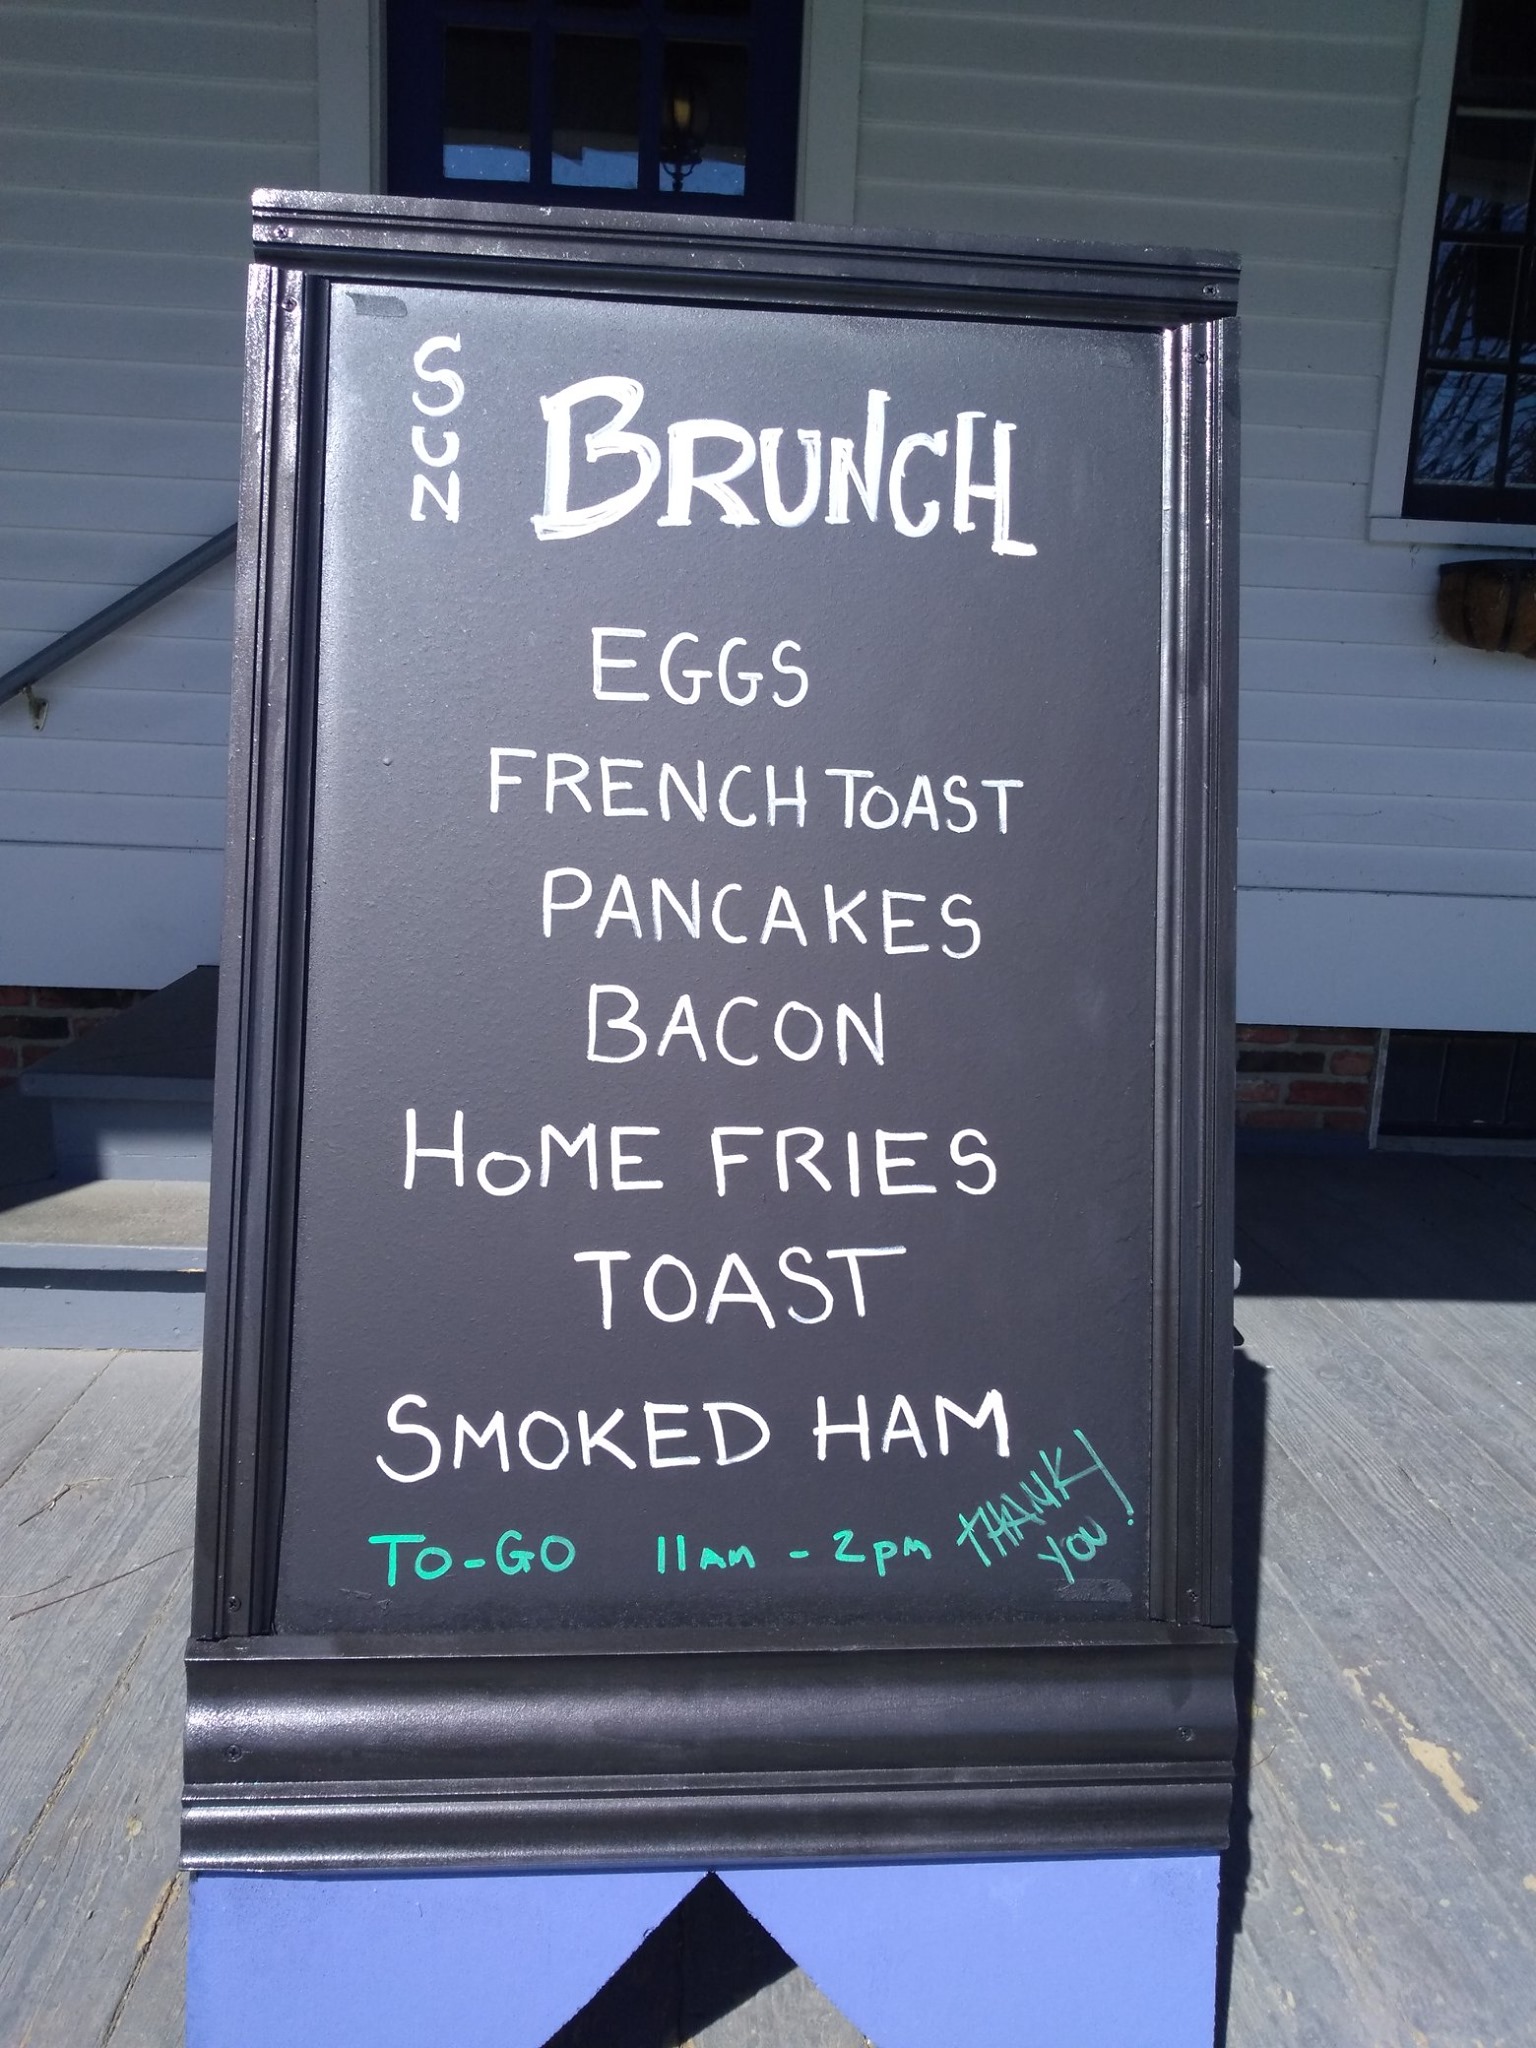 SUN BRUNCH
EGGS
FRENCH TOAST
PANCAKES
BACON
HOME FRIES
TOAST
SMOKED HAM
TO-GO 11am - 2pm THANK YOU!